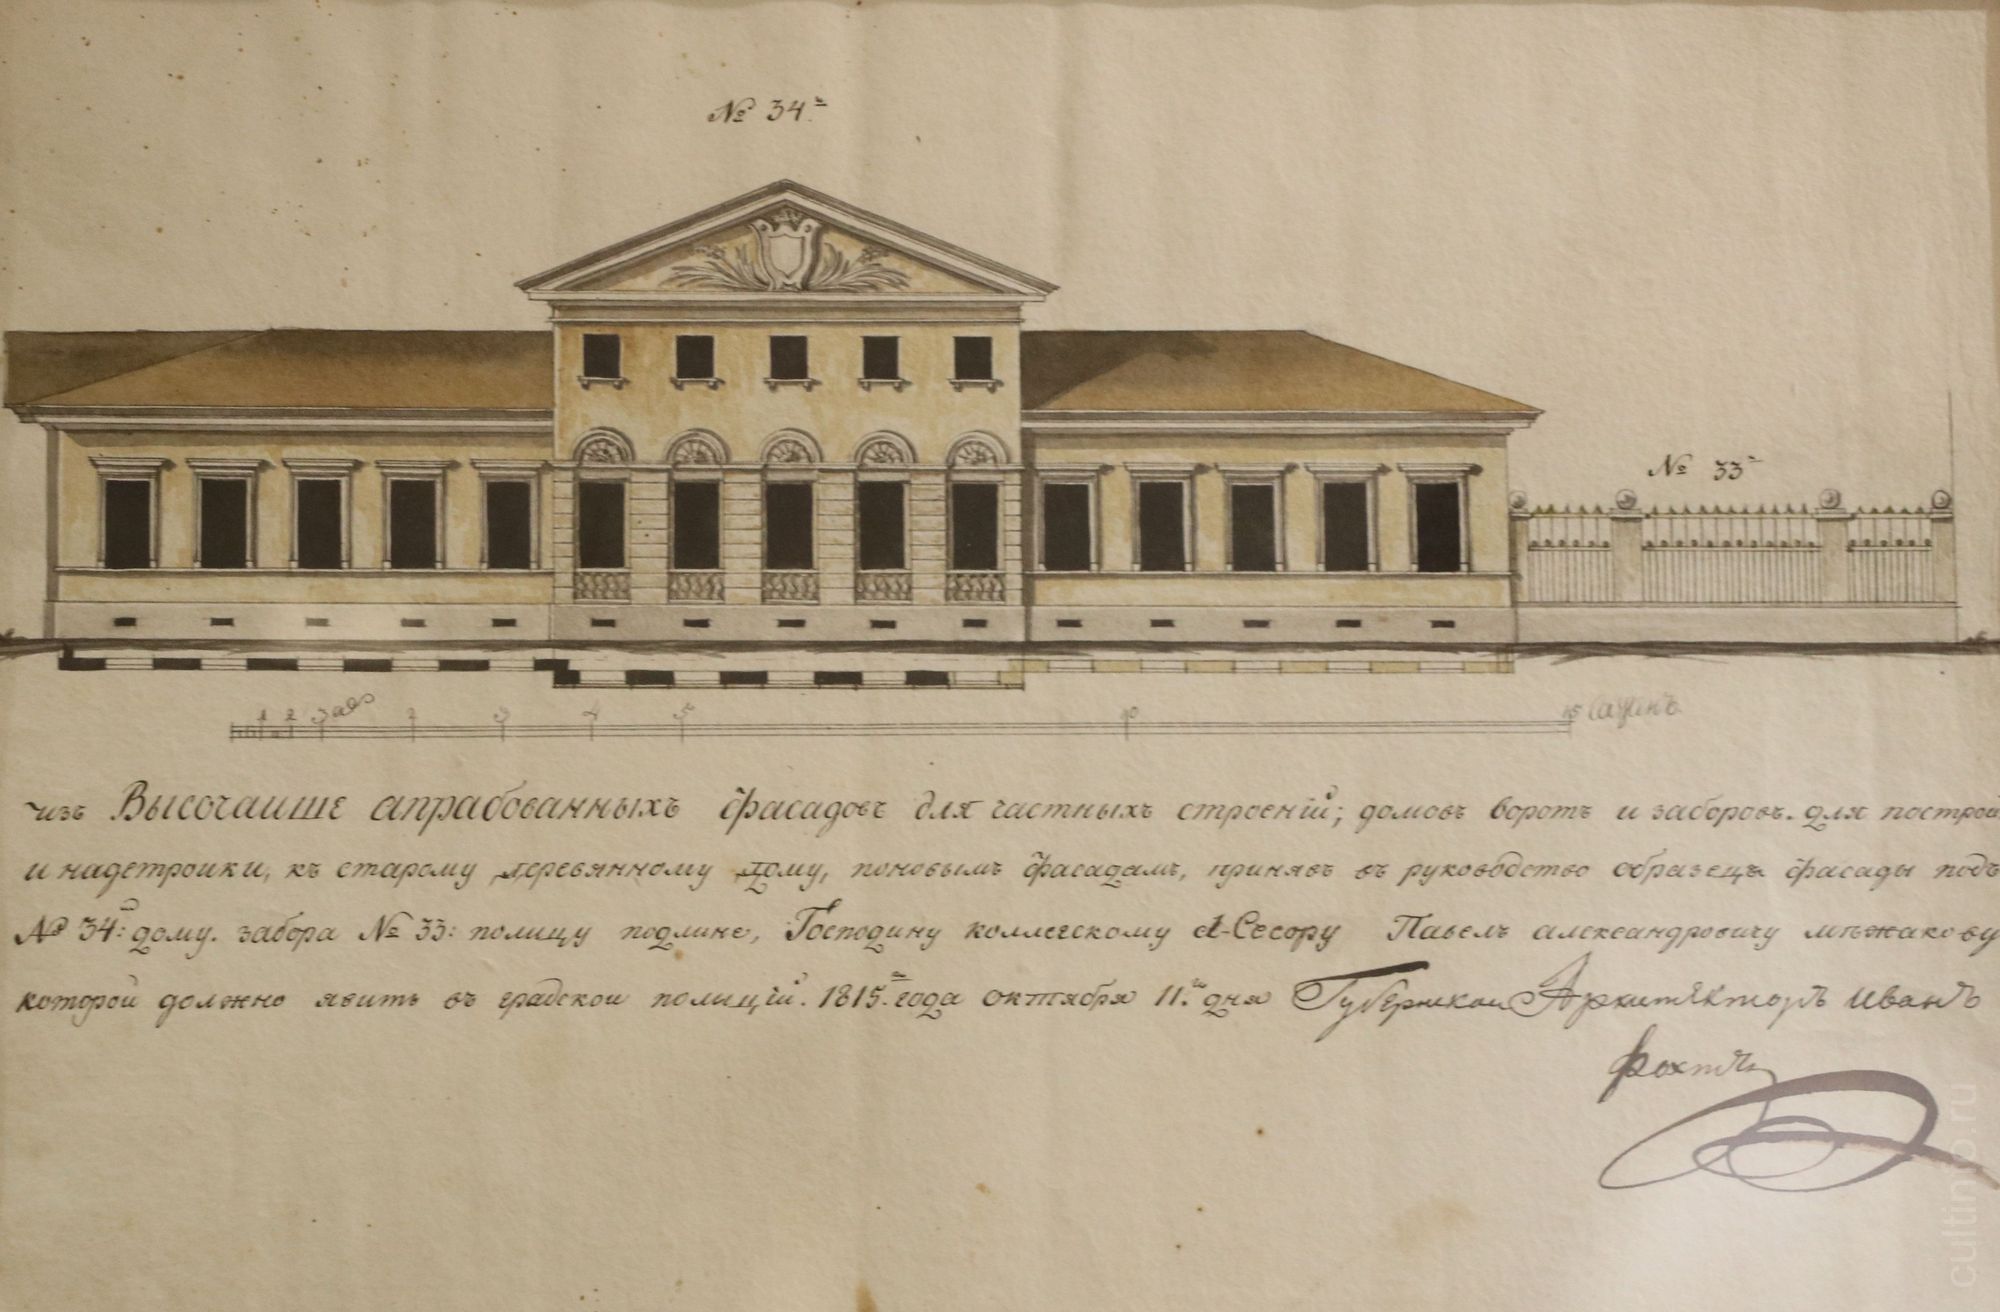 № 34.й
№ 33й
1 2 3 2 3 4 5 10 15 Сажанъ
изъ Высочаише апрабованныхъ фасадовъ для частныхъ строеній; домовъ воротъ и заборовъ. для построй
и надстроики, къ старому деревянному дому, поновымъ фасадамъ, принявъ въ руководство образецъ фасады подъ
№ 34:й дому. забора № 33: полицу подлине, Господину коллегскому А-Сесору Павелъ александровичу мѣжакову
которой должно явить въ градской полицій. 1815.го года октября 11.го дня Губернской Архитекторъ Иванъ
Фохтъ
cultinfo.ru